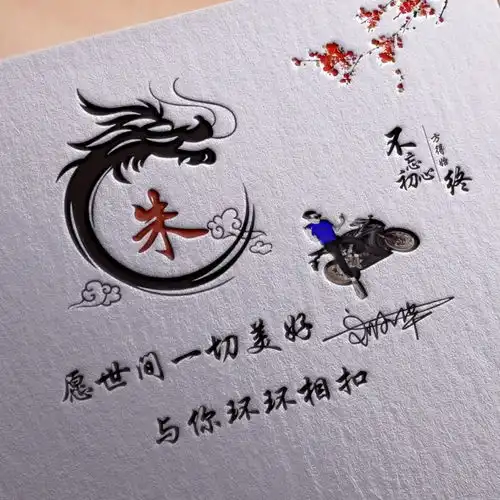 不忘初心
方得始终
朱
愿世间一切美好
与你环环相扣